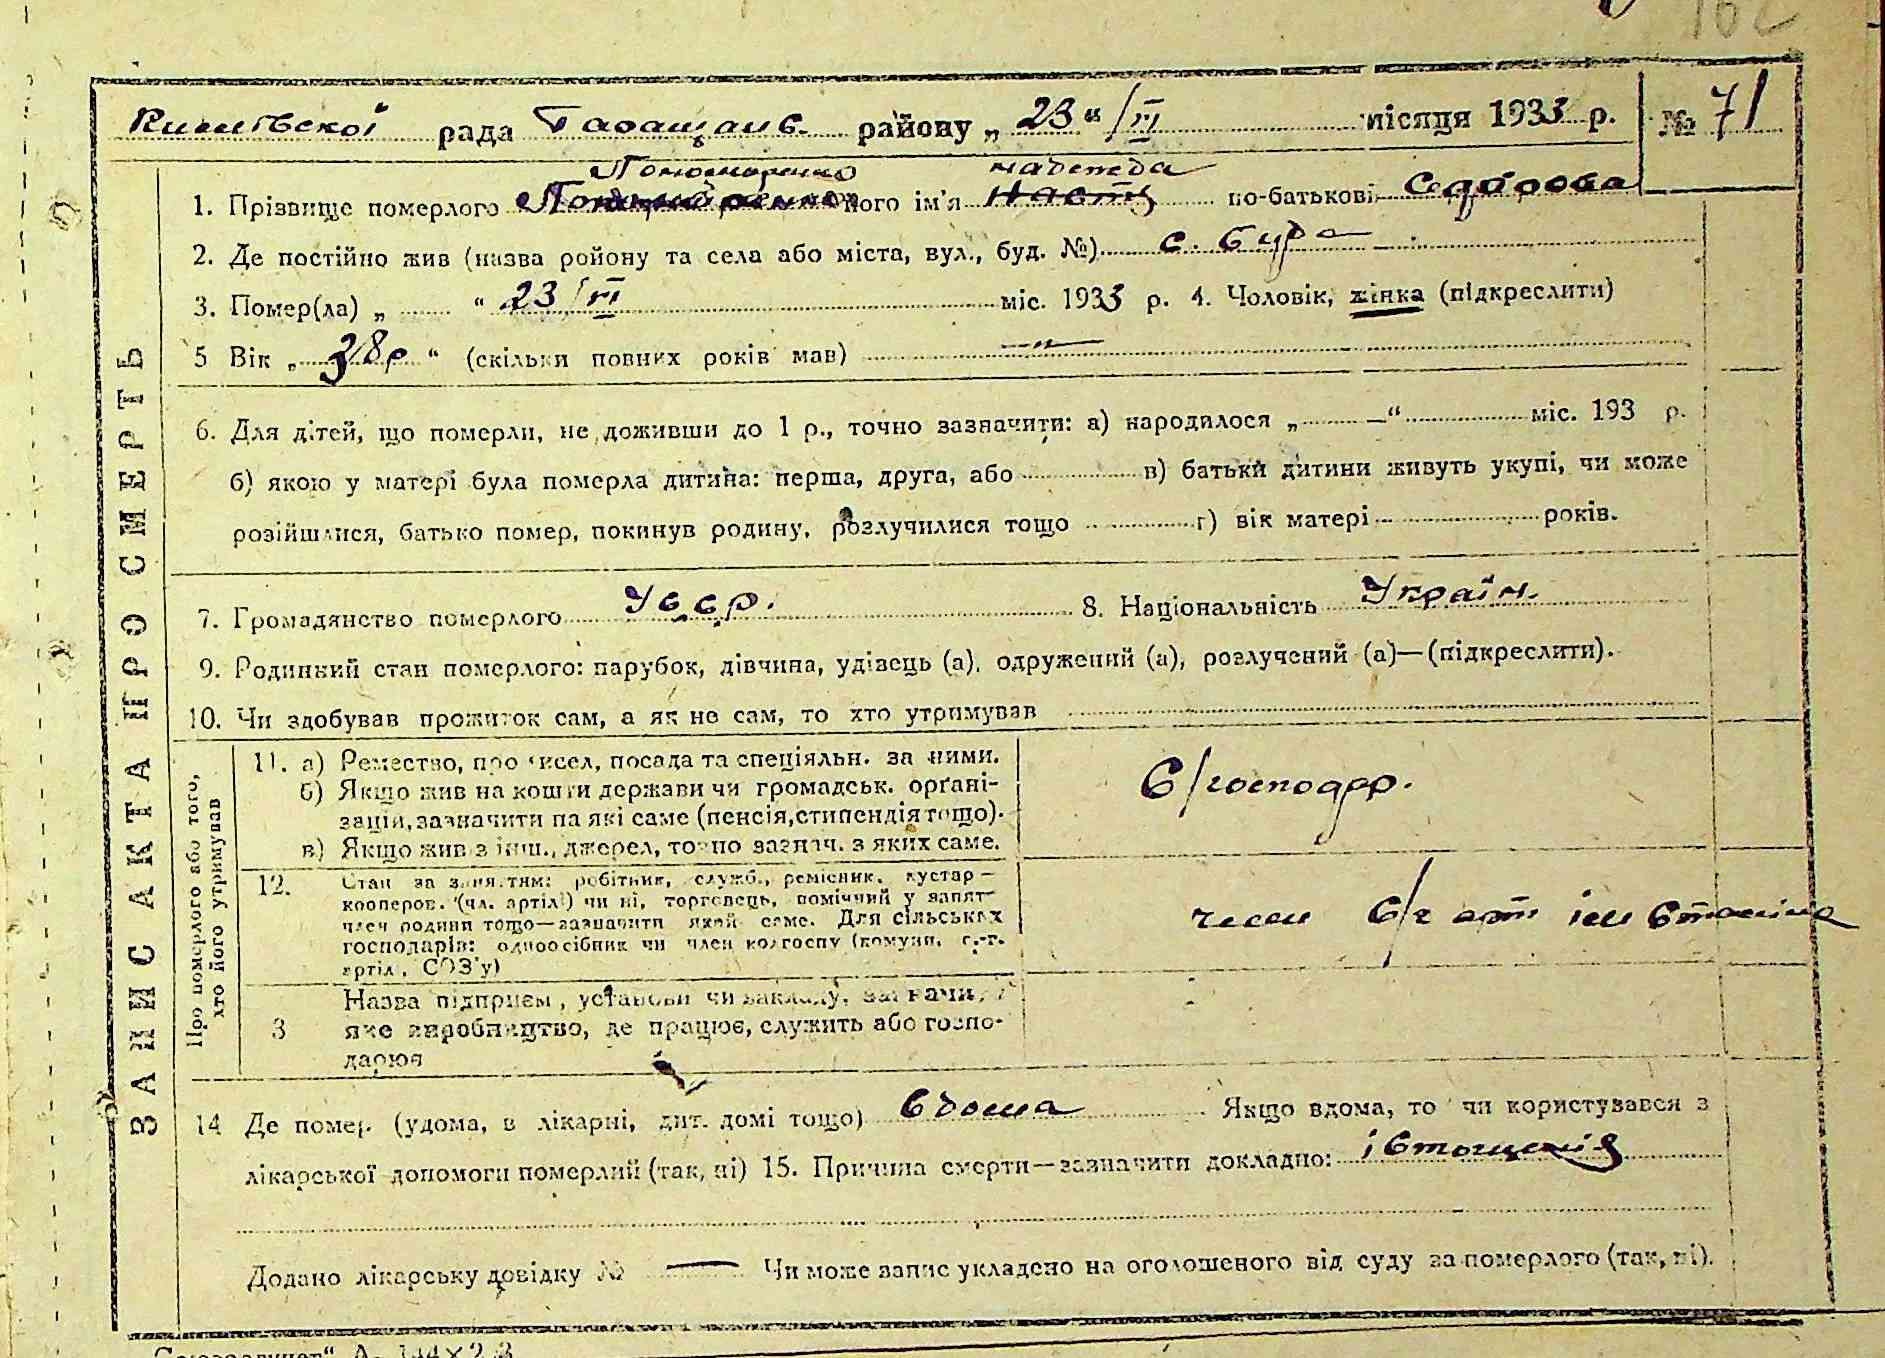 162
рада Таращанс. району „ 23 “ /VI місяця 1933 р. № 71
Пономаренко Надежда
1. Прізвище померлого його ім'я Настя по-батькові Сидорова
2. Де постійно жив (назва ройону та села або міста, вул., буд. №) с.
3. Помер(ла) „ “ 23/VI міс. 1933 р. 4. Чоловік, жінка (підкреслити)
5 Вік „ 38 р “ (скільки повних років мав) — " —
6. Для дітей, що померли, не доживши до 1 р., точно зазначити: а) народилося „ — “ міс. 193 р.
б) якою у матері була померла дитина: перша, друга, або в) батьки дитини живуть укупі, чи може
розійшлися, батько помер, покинув родину, розлучилися тощо г) вік матері років.
7. Громадянство померлого УССР. 8. Національність Україн.
9. Родинний стан померлого: парубок, дівчина, удівець (а), одружений (а), розлучений (а)—(підкреслити).
10. Чи здобував прожиток сам, а як не сам, то хто утримував
ЗАПИС АКТА ПРО СМЕРТЬ
Про померлого або того, хто його утримував
11. а) Ремество, промисел, посада та спеціяльн. за ними.
б) Якщо жив на кошти держави чи громадськ. орґані-
зацій, зазначити на які саме (пенсія, стипендія тощо).
в) Якщо жив з інш., джерел, точно зазнач. з яких саме.
С/господар.
12. Стан за заняттям: робітник, служб., ремісник, кустар—
кооперов. (чл. артілі) чи ні, торговець, помічний у занят—
член родини тощо—зазначити який саме. Для сільських
господарів: одноосібник чи член колгоспу (комуни, с.-г.
артіл., СОЗ'у)
член С/г арт ім Сталіна
3 Назва підприєм., установи чи закладу, зазначи,
яке виробництво, де працює, служить або госпо-
дарює
14 Де помер (удома, в лікарні, дит. домі тощо) вдома Якщо вдома, то чи користувався з
лікарської допомоги померлий (так, ні) 15. Причина смерти—зазначити докладно: істощенія
Додано лікарську довідку № — Чи може запис укладено на оголошеного від суду за померлого (так, ні).